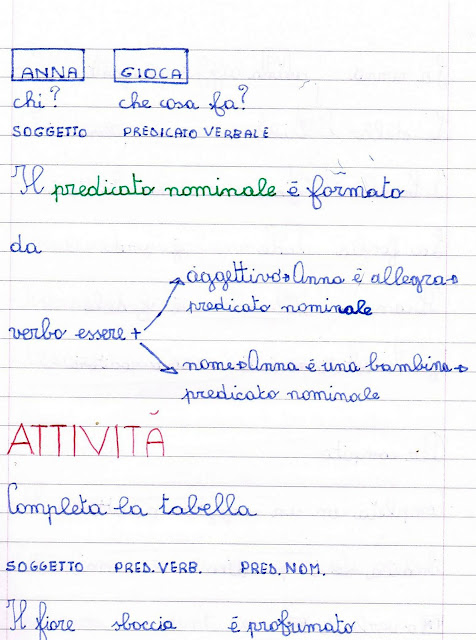 ANNA GIOCA
chi? che cosa fa?
SOGGETTO PREDICATO VERBALE
Il predicato nominale è formato
da
aggettivo→Anna è allegra→
predicato nominale
verbo essere +
nome→Anna è una bambina→
predicato nominale
ATTIVITÀ
Completa la tabella
SOGGETTO PRED. VERB. PRED. NOM.
Il fiore sboccia è profumato